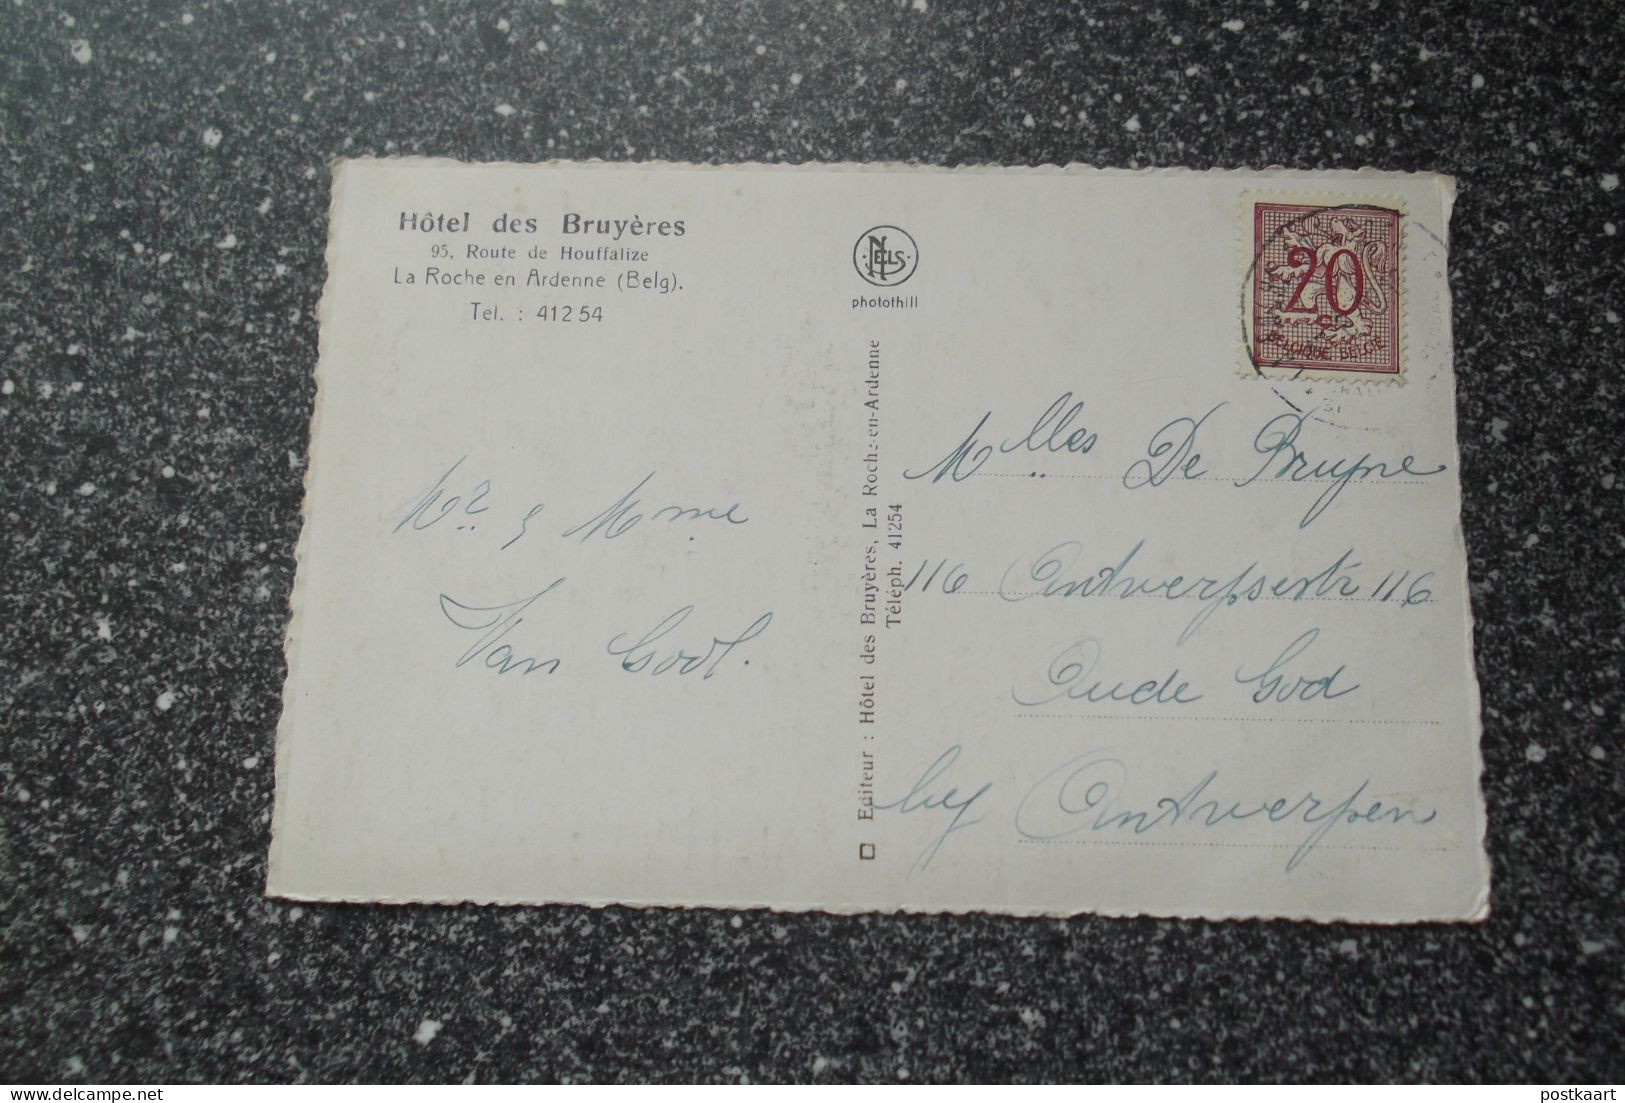 Hôtel des Bruyères
95, Route de Houffalize
La Roche en Ardenne (Belg).
Tel. : 412 54
NELS
photothill
20
BELGIQUE · BELGIË
Editeur : Hôtel des Bruyères, La Roche-en-Ardenne
Téléph. 41254
Mr & Mme
Van Gool.
Melles De Bruyne
116 Antwerpsestr 116
Oude God
bij Antwerpen
postkaart